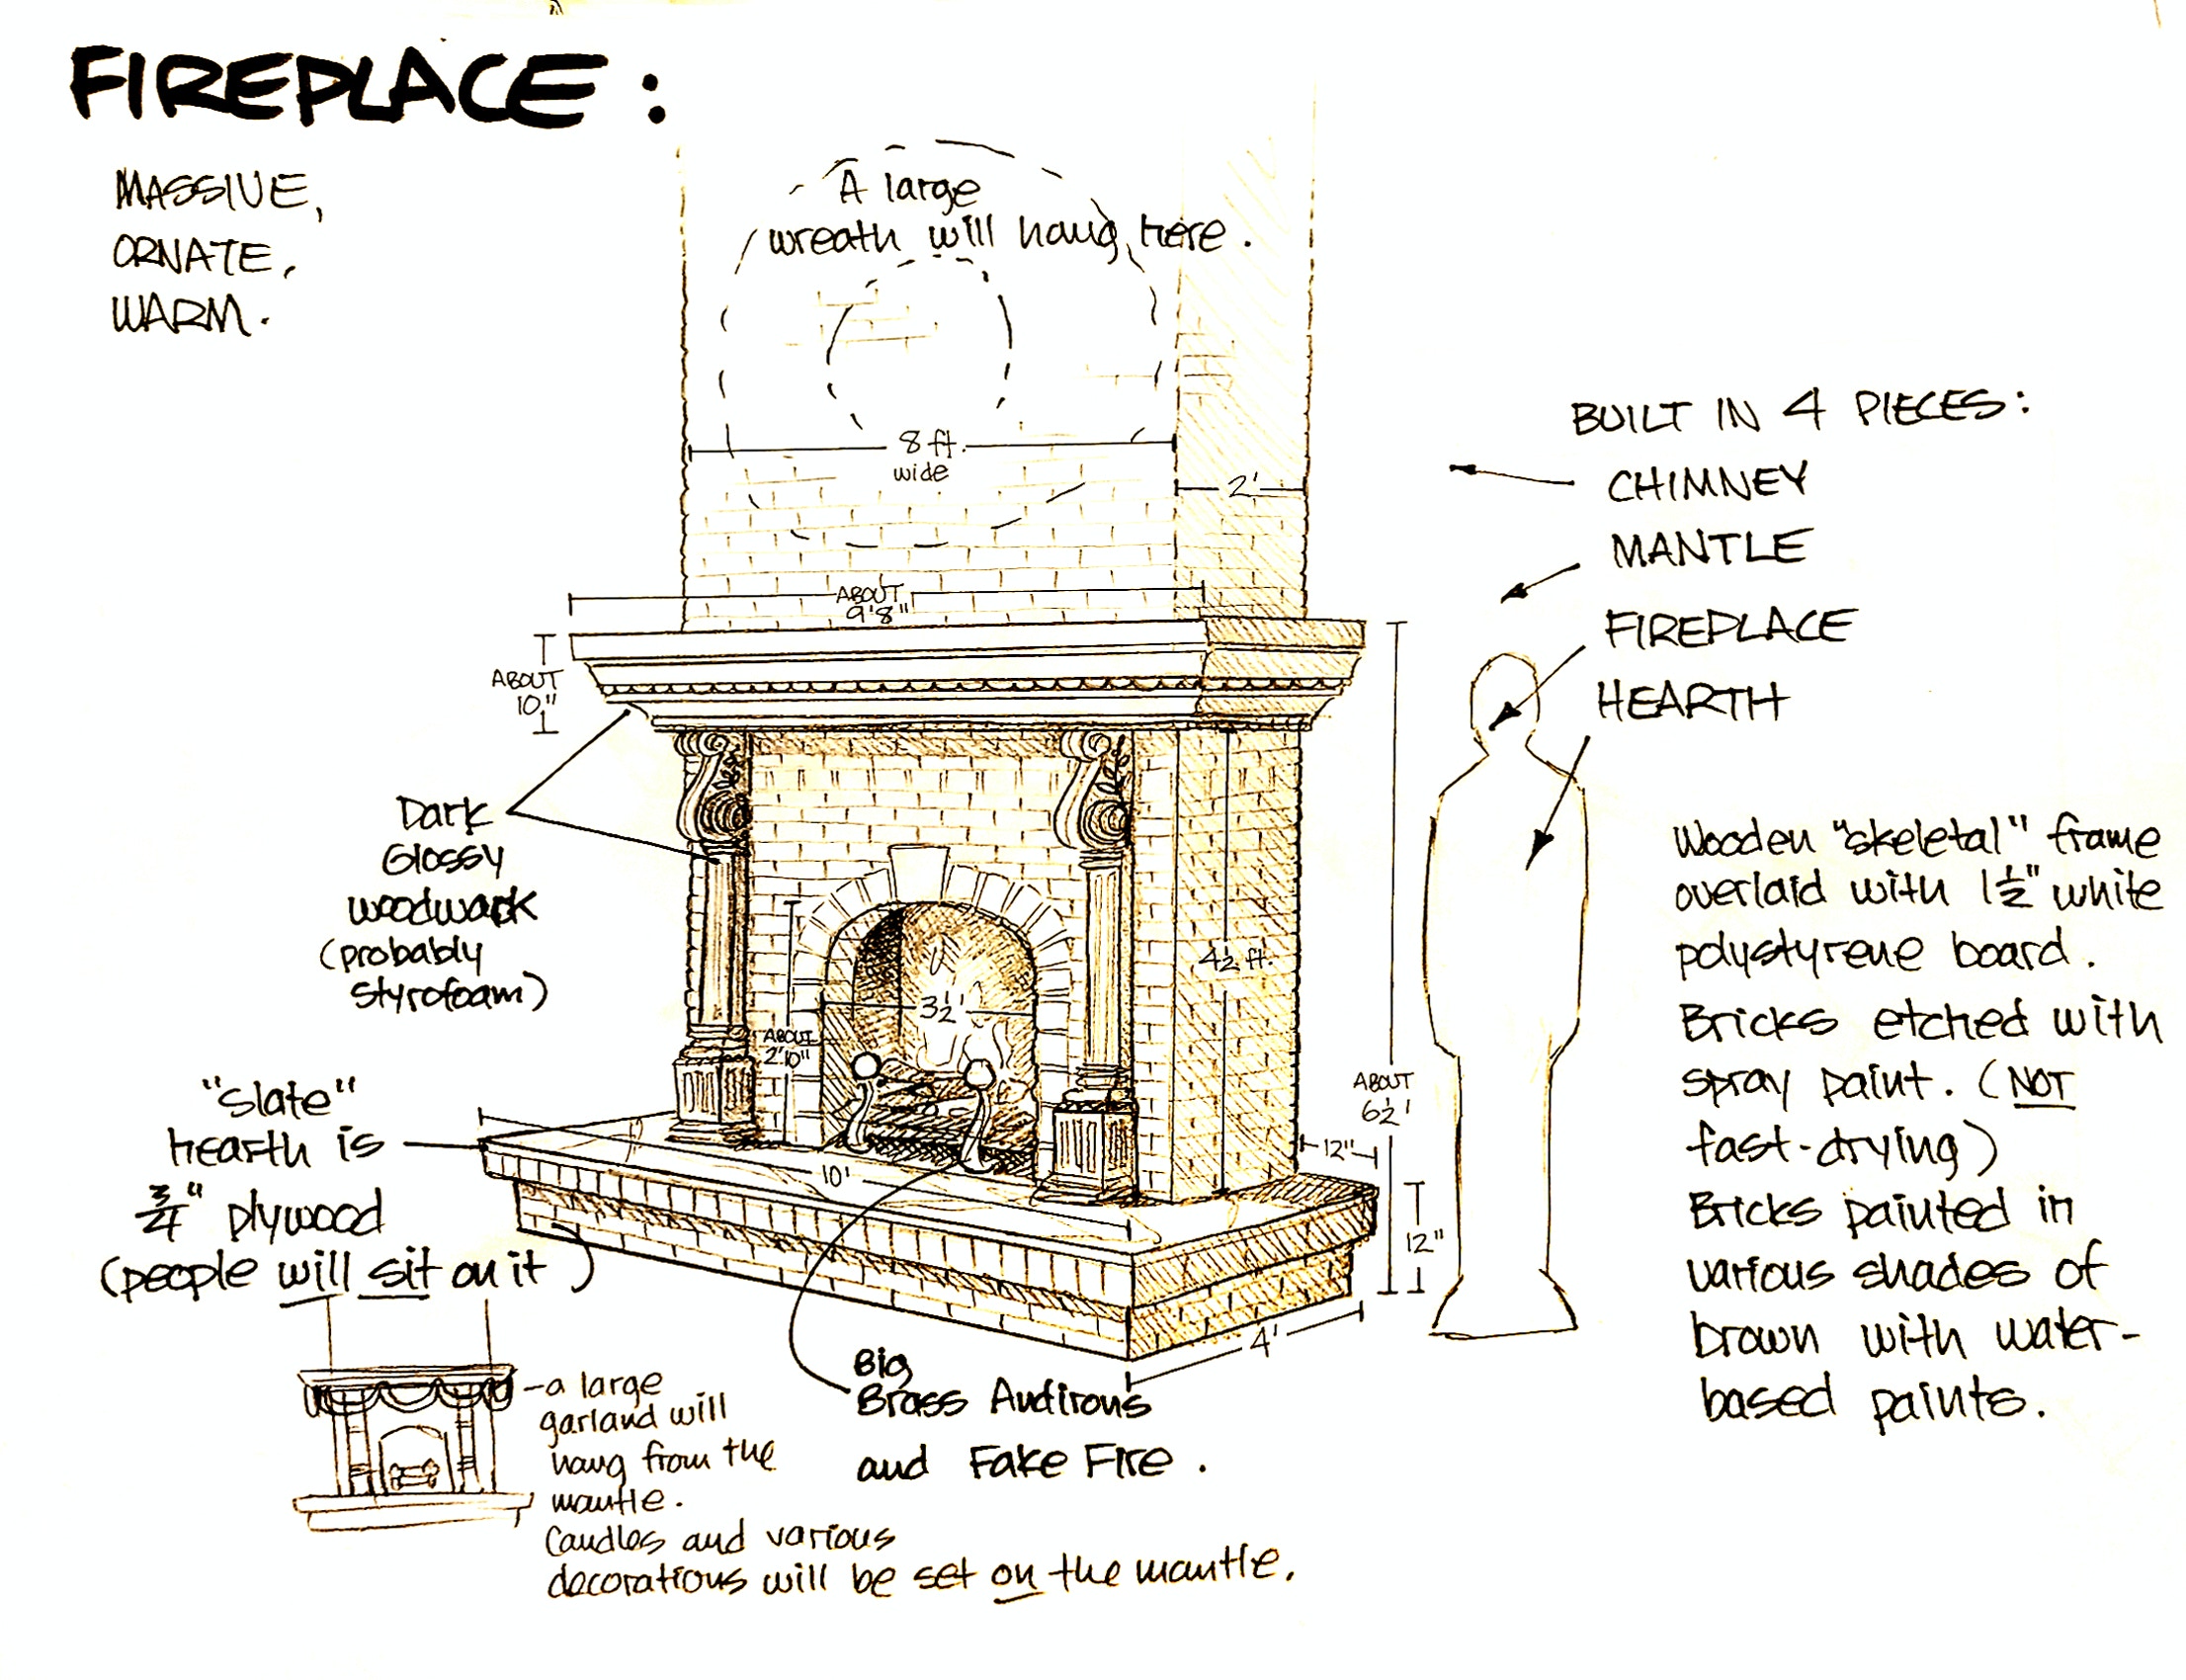 FIREPLACE:
MASSIVE,
ORNATE,
WARM.
A large
wreath will hang here.
8 ft.
wide
2'
ABOUT
9'8"
ABOUT
10"
BUILT IN 4 PIECES:
CHIMNEY
MANTLE
FIREPLACE
HEARTH
Dark
Glossy
woodwork
(probably
styrofoam)
4½ ft.
3½'
ABOUT
2'10"
ABOUT
6½'
12"
12"
10'
4'
"slate"
hearth is
¾" plywood
(people will sit on it)
Big
Brass Andirons
and Fake Fire.
-a large
garland will
hang from the
mantle.
Candles and various
decorations will be set on the mantle.
Wooden "skeletal" frame
overlaid with 1½" white
polystyrene board.
Bricks etched with
spray paint. (NOT
fast-drying)
Bricks painted in
various shades of
brown with water-
based paints.